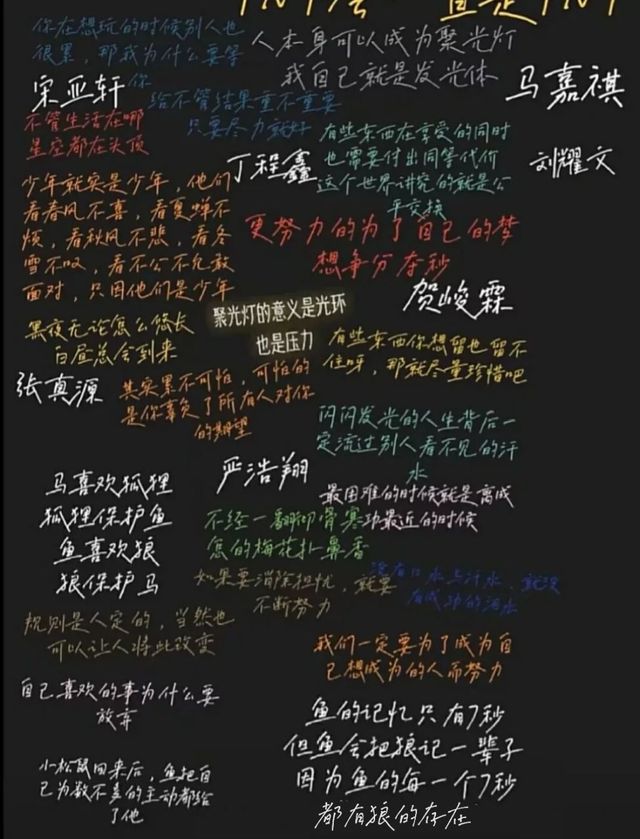 你在想玩的时候别人也
很累，那我为什么要等
你
人本身可以成为聚光灯
我自己就是发光体
宋亚轩
马嘉祺
给不管结果重不重要
只要尽力就好
不管生活在哪
星座都在头顶
丁程鑫
有些东西在享受的同时
也需要付出同等代价
这个世界讲究的就是公
平交换
刘耀文
少年就实是少年，他们
看春风不喜，看夏蝉不
烦，看秋风不悲，看冬
雪不叹，看不公不允敢
面对，只因他们是少年
更努力的为了自己的梦
想争分夺秒
贺峻霖
聚光灯的意义是光环
也是压力
黑夜无论怎么悠长
白昼总会到来
有些东西你想留也留不
住呀，那就尽量珍惜吧
张真源
其实累不可怕，可怕的
是你辜负了所有人对你
的期望
闪闪发光的人生背后一
定流过别人看不见的汗
水
严浩翔
马喜欢狐狸
狐狸保护鱼
鱼喜欢狼
狼保护马
最困难的时候就是离成
功最近的时候
不经一翻彻骨寒
怎的梅花扑鼻香
如果要消除担忧，就要
不断努力
没有口水与汗水，就没
有成功的泪水
规则是人定的，当然也
可以让人将此改变
我们一定要为了成为自
己想成为的人而努力
自己喜欢的事为什么要
放弃
鱼的记忆只有7秒
但鱼会把狼记一辈子
因为鱼的每一个7秒
都有狼的存在
小松鼠回来后，鱼把自
己为数不多的主动都给
了他